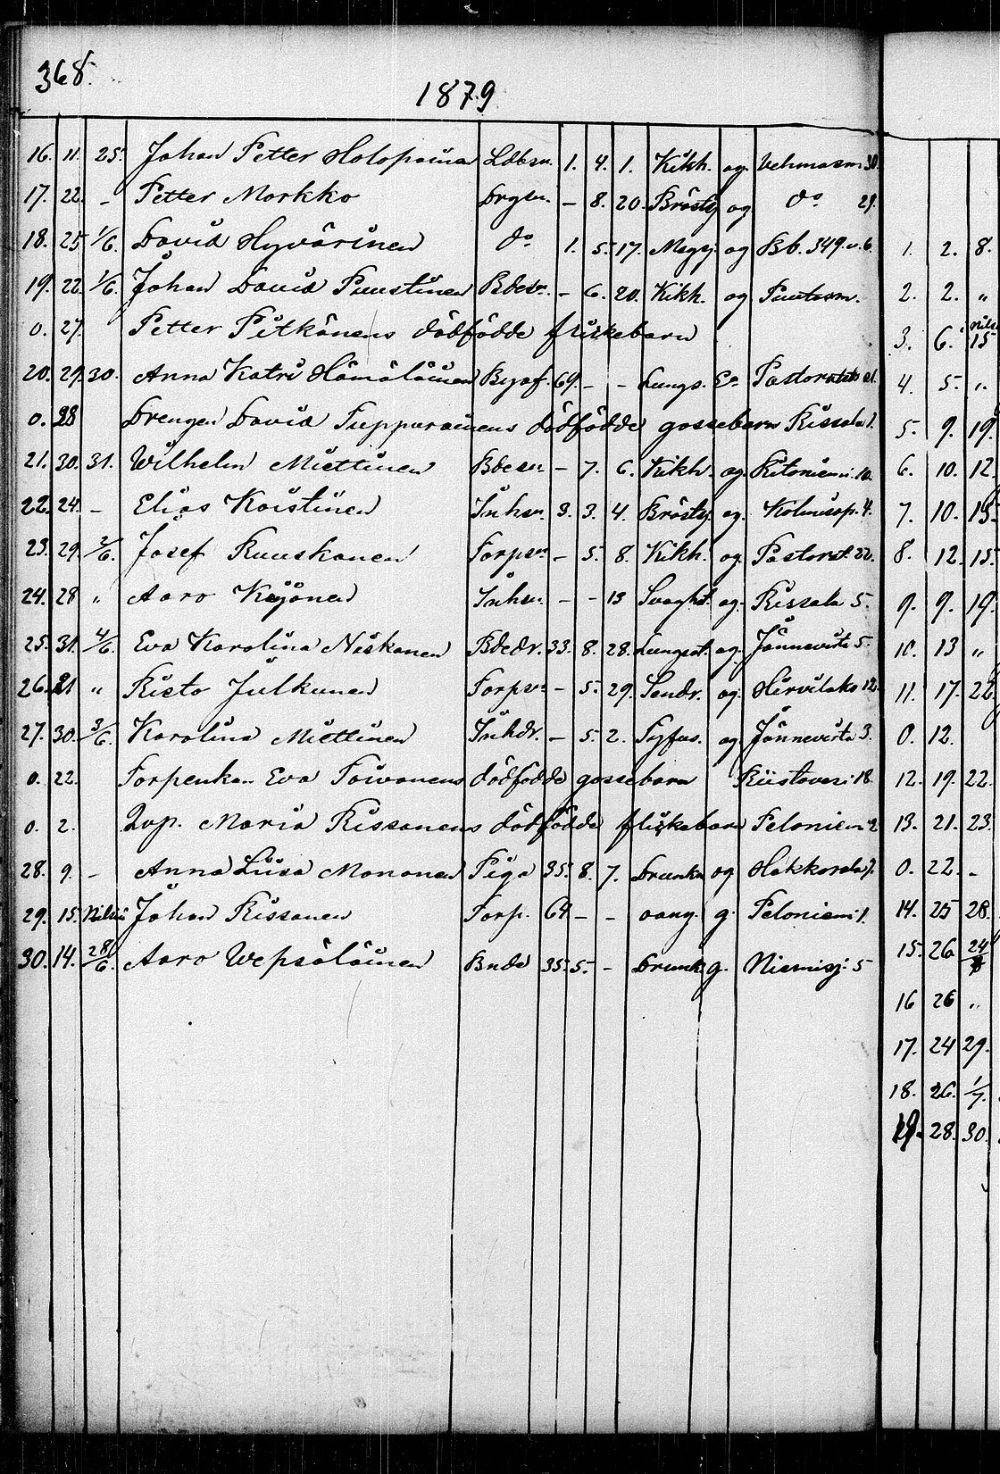 368.
1879
16. 11. 25. Johan Petter Holopainen Ldbsn. 1. 4. 1. Kikh. og. Vehmasm. 30.
17. 22. – Petter Markko Drgsn. – 8. 20. Bröstsj og do 29.
18. 25 1/6. David Hyvärinen do 1. 5. 17. Magsj. og Bb. 349. v. 6.
19. 22. 1/6. Johan David Puustinen Bdesn. – 6. 20. Kikh. og Puutosm.
0. 27. Petter Pitkänens dödfödde flickebarn
20. 29. 30. Anna Katri Hämäläinen Byaf. 69. – – Lungs. Ea. Pastoratet 21.
0. 28 Drengen David Tuppurainens dödfödde gossebarn Rissala 1.
21. 30. 31. Wilhelm Miettinen Bdesn – 7. 6. Kikh. og Ritoniemi 10.
22. 24. – Elias Koistinen Inhsn. 3. 3. 4. Bröstsj. og. Kolmisop. 4.
23. 29. 2/6. Josef Ruuskanen Torpsn – 5. 8. Kikh. og Pastorat. 22.
24. 28 " Aaro Keijonen Inhsn. – – 13 Svaghet. og. Rissala 5.
25. 31. 4/6. Eva Karolina Niskanen Bdedr. 33. 8. 28. Lungsot. og. Jännevirta 5.
26. 21 " Risto Julkunen Torpsn – 5. 29. Sendr. og. Hirvilaks 12.
27. 30. 3/6. Karolina Miettinen Inhdr. – 5. 2. Tyfus. og Jännevirta 3.
0. 22. Torpenkan Eva Toivanens dödfödde gossebarn Riistavesi 18.
0. 2. Qvp. Maria Rissanens dödfödde flickebarn Peloniemi 2
28. 9. – Anna Liisa Mononen Piga 35. 8. 7. Drunkn og Hakkarala 7.
29. 15. Nilsiä Johan Rissanen Torp. 64. – – oang. g. Peloniemi 1.
30. 14. 28/6. Aaro Wepsäläinen Bnde 35. 5. – Drunk. g. Niemisj: 5
1. 2. 8.
2. 2. "
3. 6. Nils 15
4. 5. "
5. 9. 19.
6. 10. 12.
7. 10. 15.
8. 12. 15.
9. 9. 19.
10. 13 "
11. 17. 22.
0. 12.
12. 19. 22.
13. 21. 23.
0. 22. –
14. 25 28.
15. 26. 24/8
16 26 "
17. 24 29.
18. 26. 1/7.
19. 28. 30.